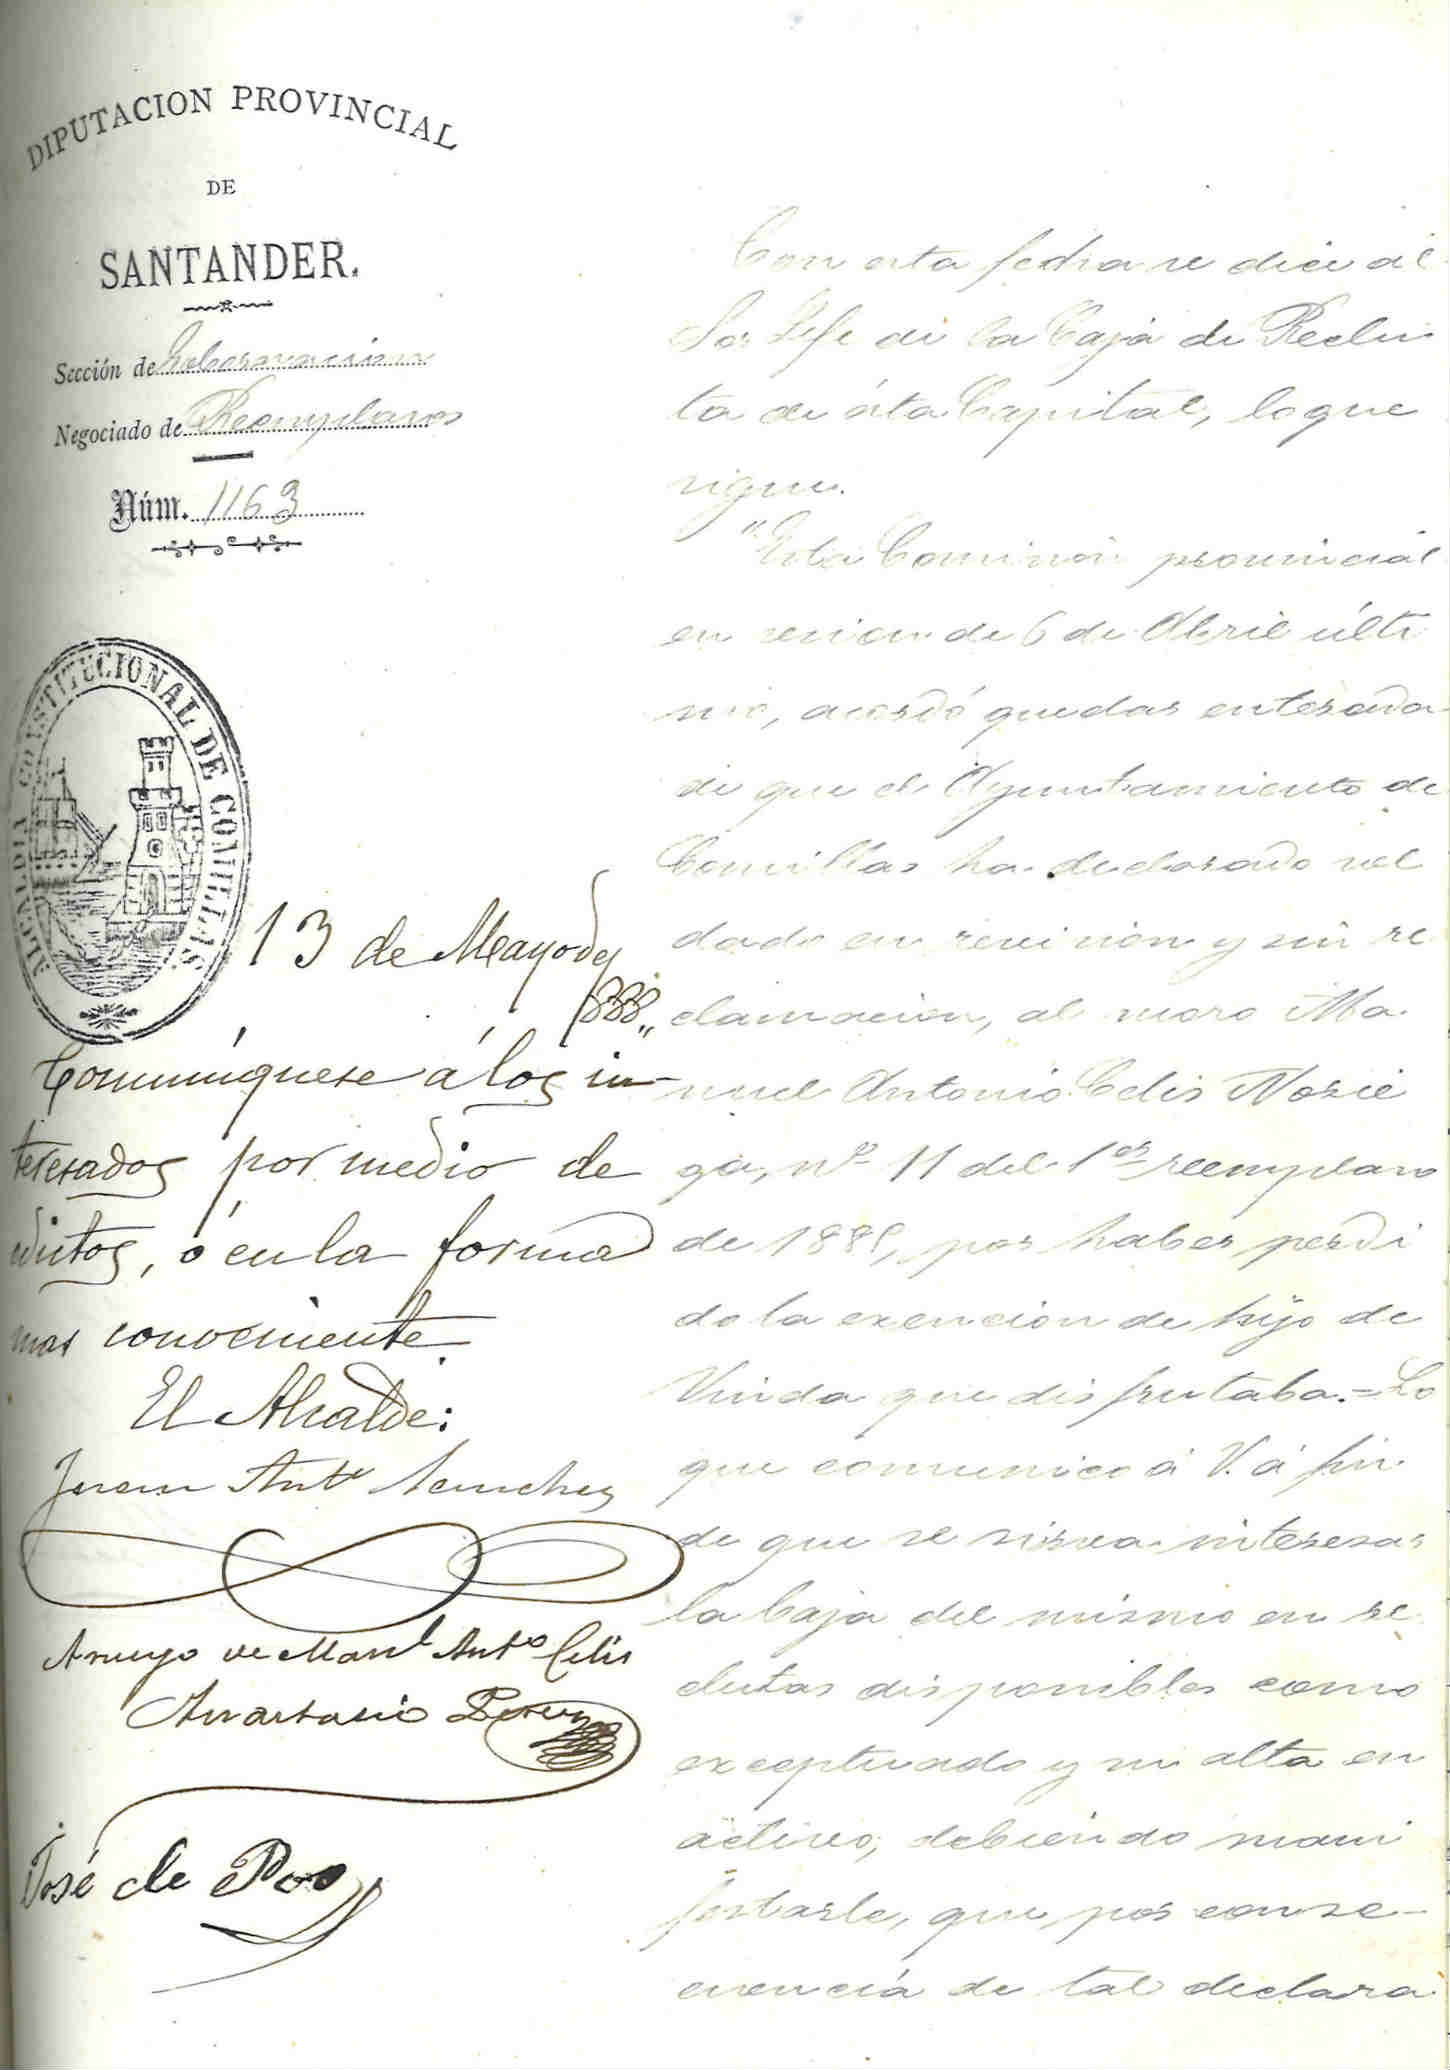 DIPUTACION PROVINCIAL
DE
SANTANDER.
Sección de Gobernacion
Negociado de Reemplazos
Núm. 1163
ALCALDIA CONSTITUCIONAL DE COMILLAS
13 de Mayo de
1888,,
Comuníquese á los in-
teresados por medio de
edictos, ó en la forma
mas conveniente.
El Alcalde:
Juan Antº Sanchez
Arruego de Manl Antº Celis
Anastasio Perez
José de Poo
Con esta fecha se dice al
Sor Jefe de la Caja de Reclu
ta de ésta Capital, lo que
sigue.
"Esta Comision provincial
en sesion de 6 de Abril últi
mo, acordó quedar enterada
de que el Ayuntamiento de
Comillas ha declarado sol
dado en revision y sin re
clamacion, al mozo Ma-
nuel Antonio Celis Norie
ga, nº 11 del 1er reemplazo
de 1885, por haber perdi
do la exencion de hijo de
Viuda que disfrutaba.=Lo
que comunico á V. á fin
de que se sirva interesar
la baja del mismo en re
clutas disponibles como
exceptuado y su alta en
activo, debiendo mani
festarle, que por conse-
cuencia de tal declara